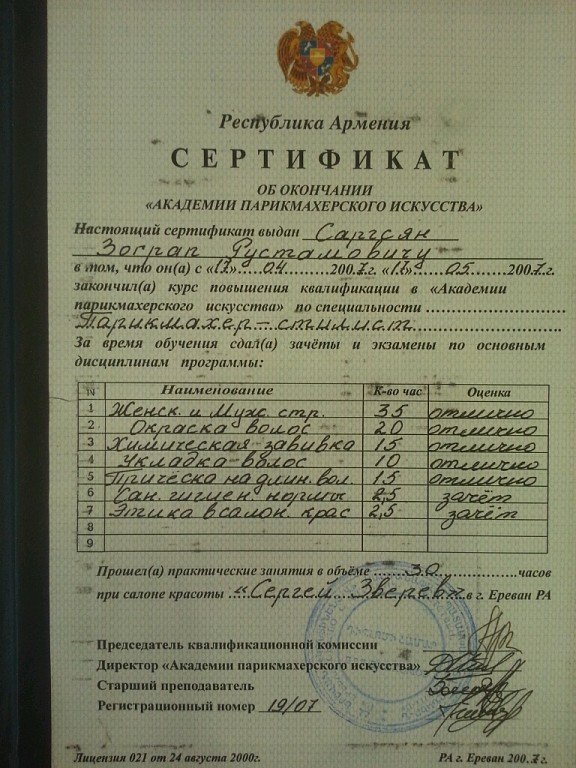 Республика Армения
СЕРТИФИКАТ
ОБ ОКОНЧАНИИ
«АКАДЕМИИ ПАРИКМАХЕРСКОГО ИСКУССТВА»
Настоящий сертификат выдан Саргсян
Зограп Рустамовичу
в том, что он(а) с «17».....04.........2007.г. «17»......05.......2007.г.
закончил(а) курс повышения квалификации в «Академии
парикмахерского искусства» по специальности
Парикмахер – стилист
За время обучения сдал(а) зачёты и экзамены по основным
дисциплинам программы:
N Наименование К-во час Оценка
1 Женск. и Муж. стр. 35 отлично
2 Окраска волос 20 отлично
3 Химическая завивка 15 отлично
4 Укладка волос 10 отлично
5 Причёска на длин. вол. 15 отлично
6 Сан. гигиен. нормы 2,5 зачёт
7 Этика в салон. крас 2,5 зачёт
8
9
Прошел(а) практические занятия в объёме 30 часов
при салоне красоты «Сергей Зверев» в г. Ереван РА
Председатель квалификационной комиссии
Директор «Академии парикмахерского искусства»
Старший преподаватель
Регистрационный номер 19/07
Лицензия 021 от 24 августа 2000г. РА г. Ереван 2007г.